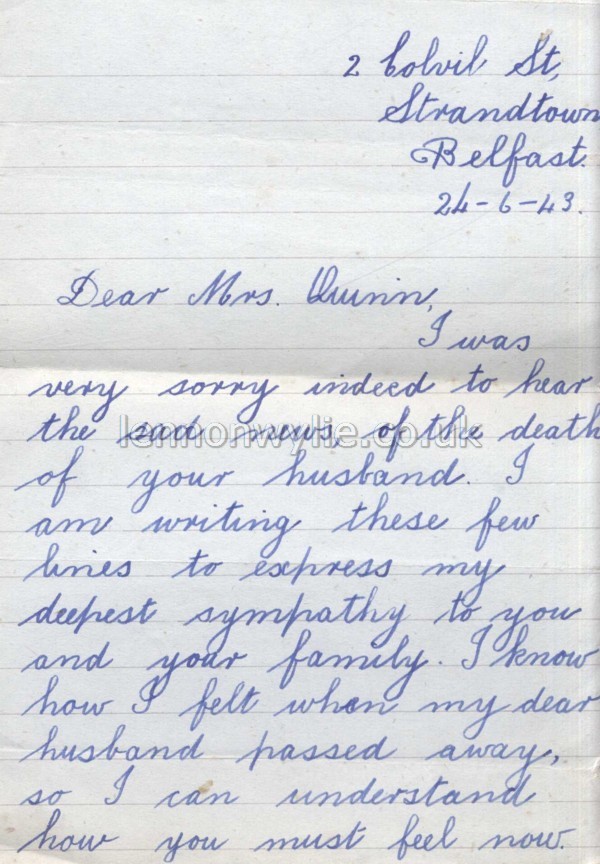 2 Colvil St,
Strandtown
Belfast.
24-6-43.
Dear Mrs. Quinn,
I was
very sorry indeed to hear
the sad news, of the death
lennonwylie.co.uk
of your husband. I
am writing these few
lines to express my
deepest sympathy to you
and your family. I know
how I felt when my dear
husband passed away,
so I can understand
how you must feel now.